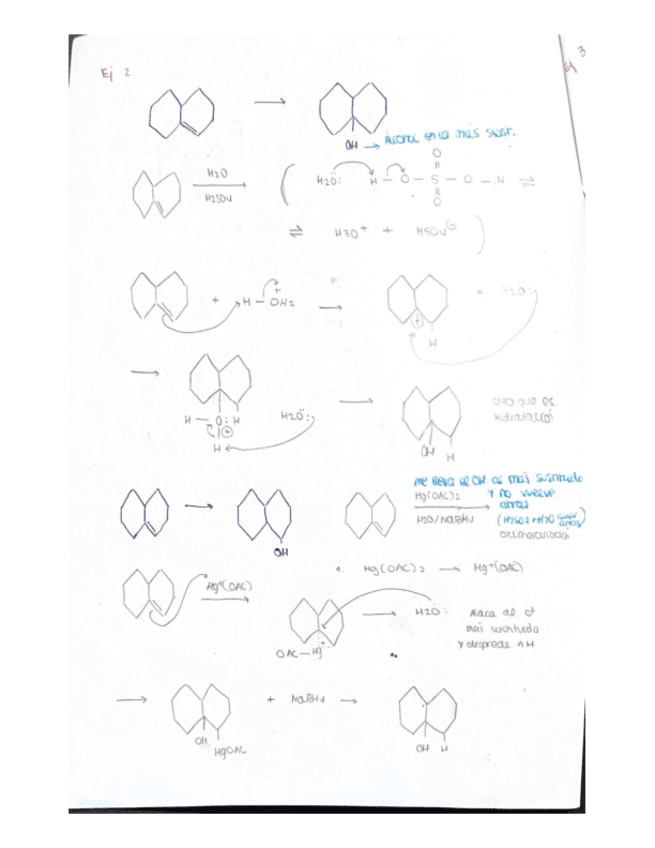 Ej 2.
Ej 3
OH → Alcohol en la más sust.
H2O
H2SO4
H2Ö: H - O - S - O - H ⇌
O
O
⇌ H3O+ + HSO4⊖
+ H - OH2 → + H2O:
+
H
→ H - O: H H2Ö: →
H
OH H
creo que es
hidratación
me lleva el OH al más sustituido
→ Hg(OAC)2 y no vuelve
atrás
H2O/NaBH4 (H2SO4+H2O
OH
1. Hg(OAC)2 → Hg+(OAC)
Hg+(OAC)
→ H2O:
OAC - Hg
Ataca al c+
más sustituido
y desprende 1 H
→ + NaBH4 →
OH
HgOAC
OH H